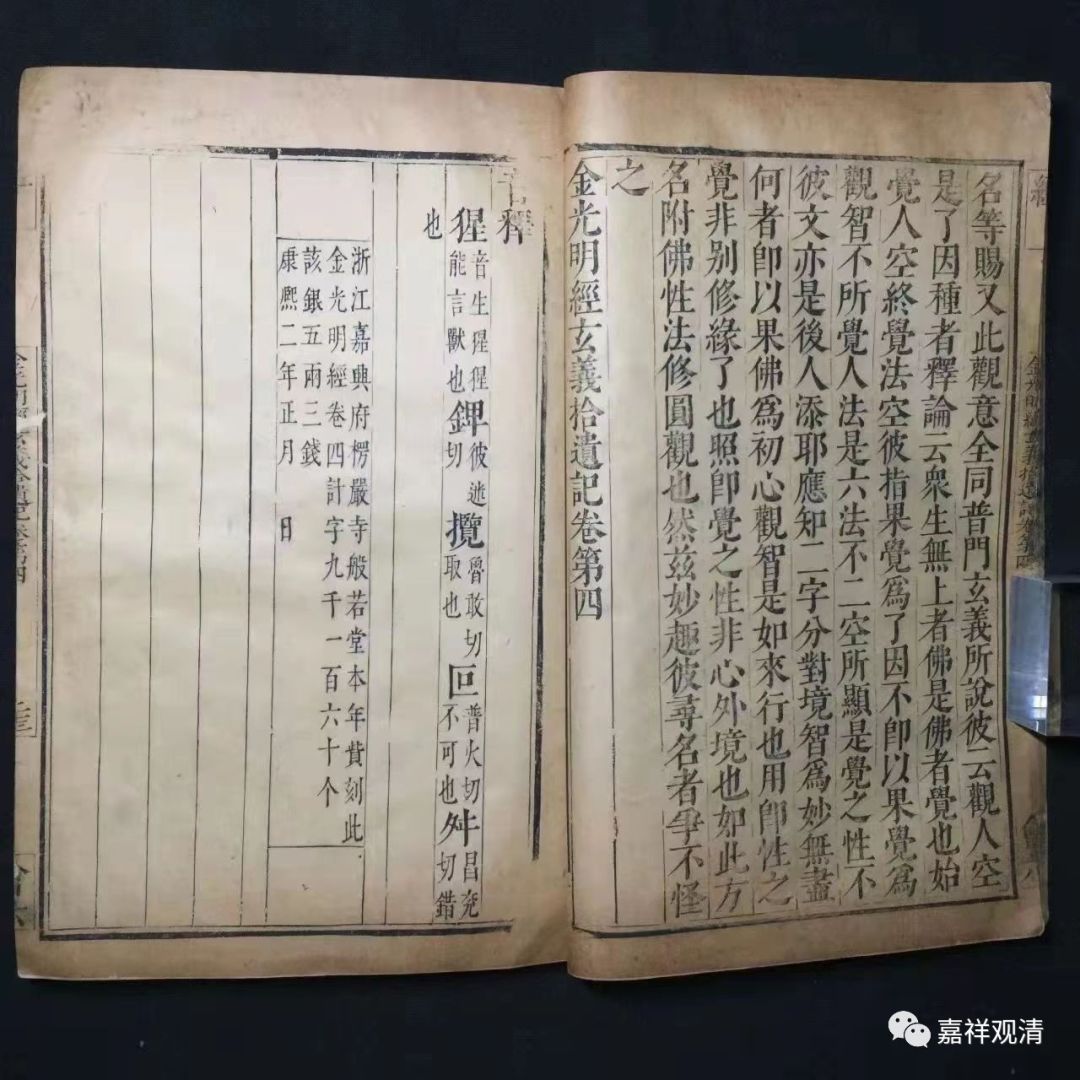 名等賜又此觀意全同普門玄義所說彼云觀人空
是了因種者釋論云衆生無上者佛是佛者覺也始
覺人空終覺法空彼指果覺爲了因不卽以果覺爲
觀智不所覺人法是六法不二空所顯是覺之性不
彼文亦是後人添耶應知二字分對境智爲妙無盡
何者卽以果佛爲初心觀智是如來行也用卽性之
覺非别修緣了也照卽覺之性非心外境也如此方
名附佛性法修圓觀也然兹妙趣彼尋名者爭不怪
之
金光明經玄義拾遺記卷第四
音釋
猩音生猩猩能言獸也鉀彼迷切攬魯敢切取也叵普火切不可也舛昌兖切錯
也
浙江嘉興府楞嚴寺般若堂本年費刻此
金光明經卷四計字九千一百六十个
該銀五兩三錢
康熙二年正月 日
嘉祥观清